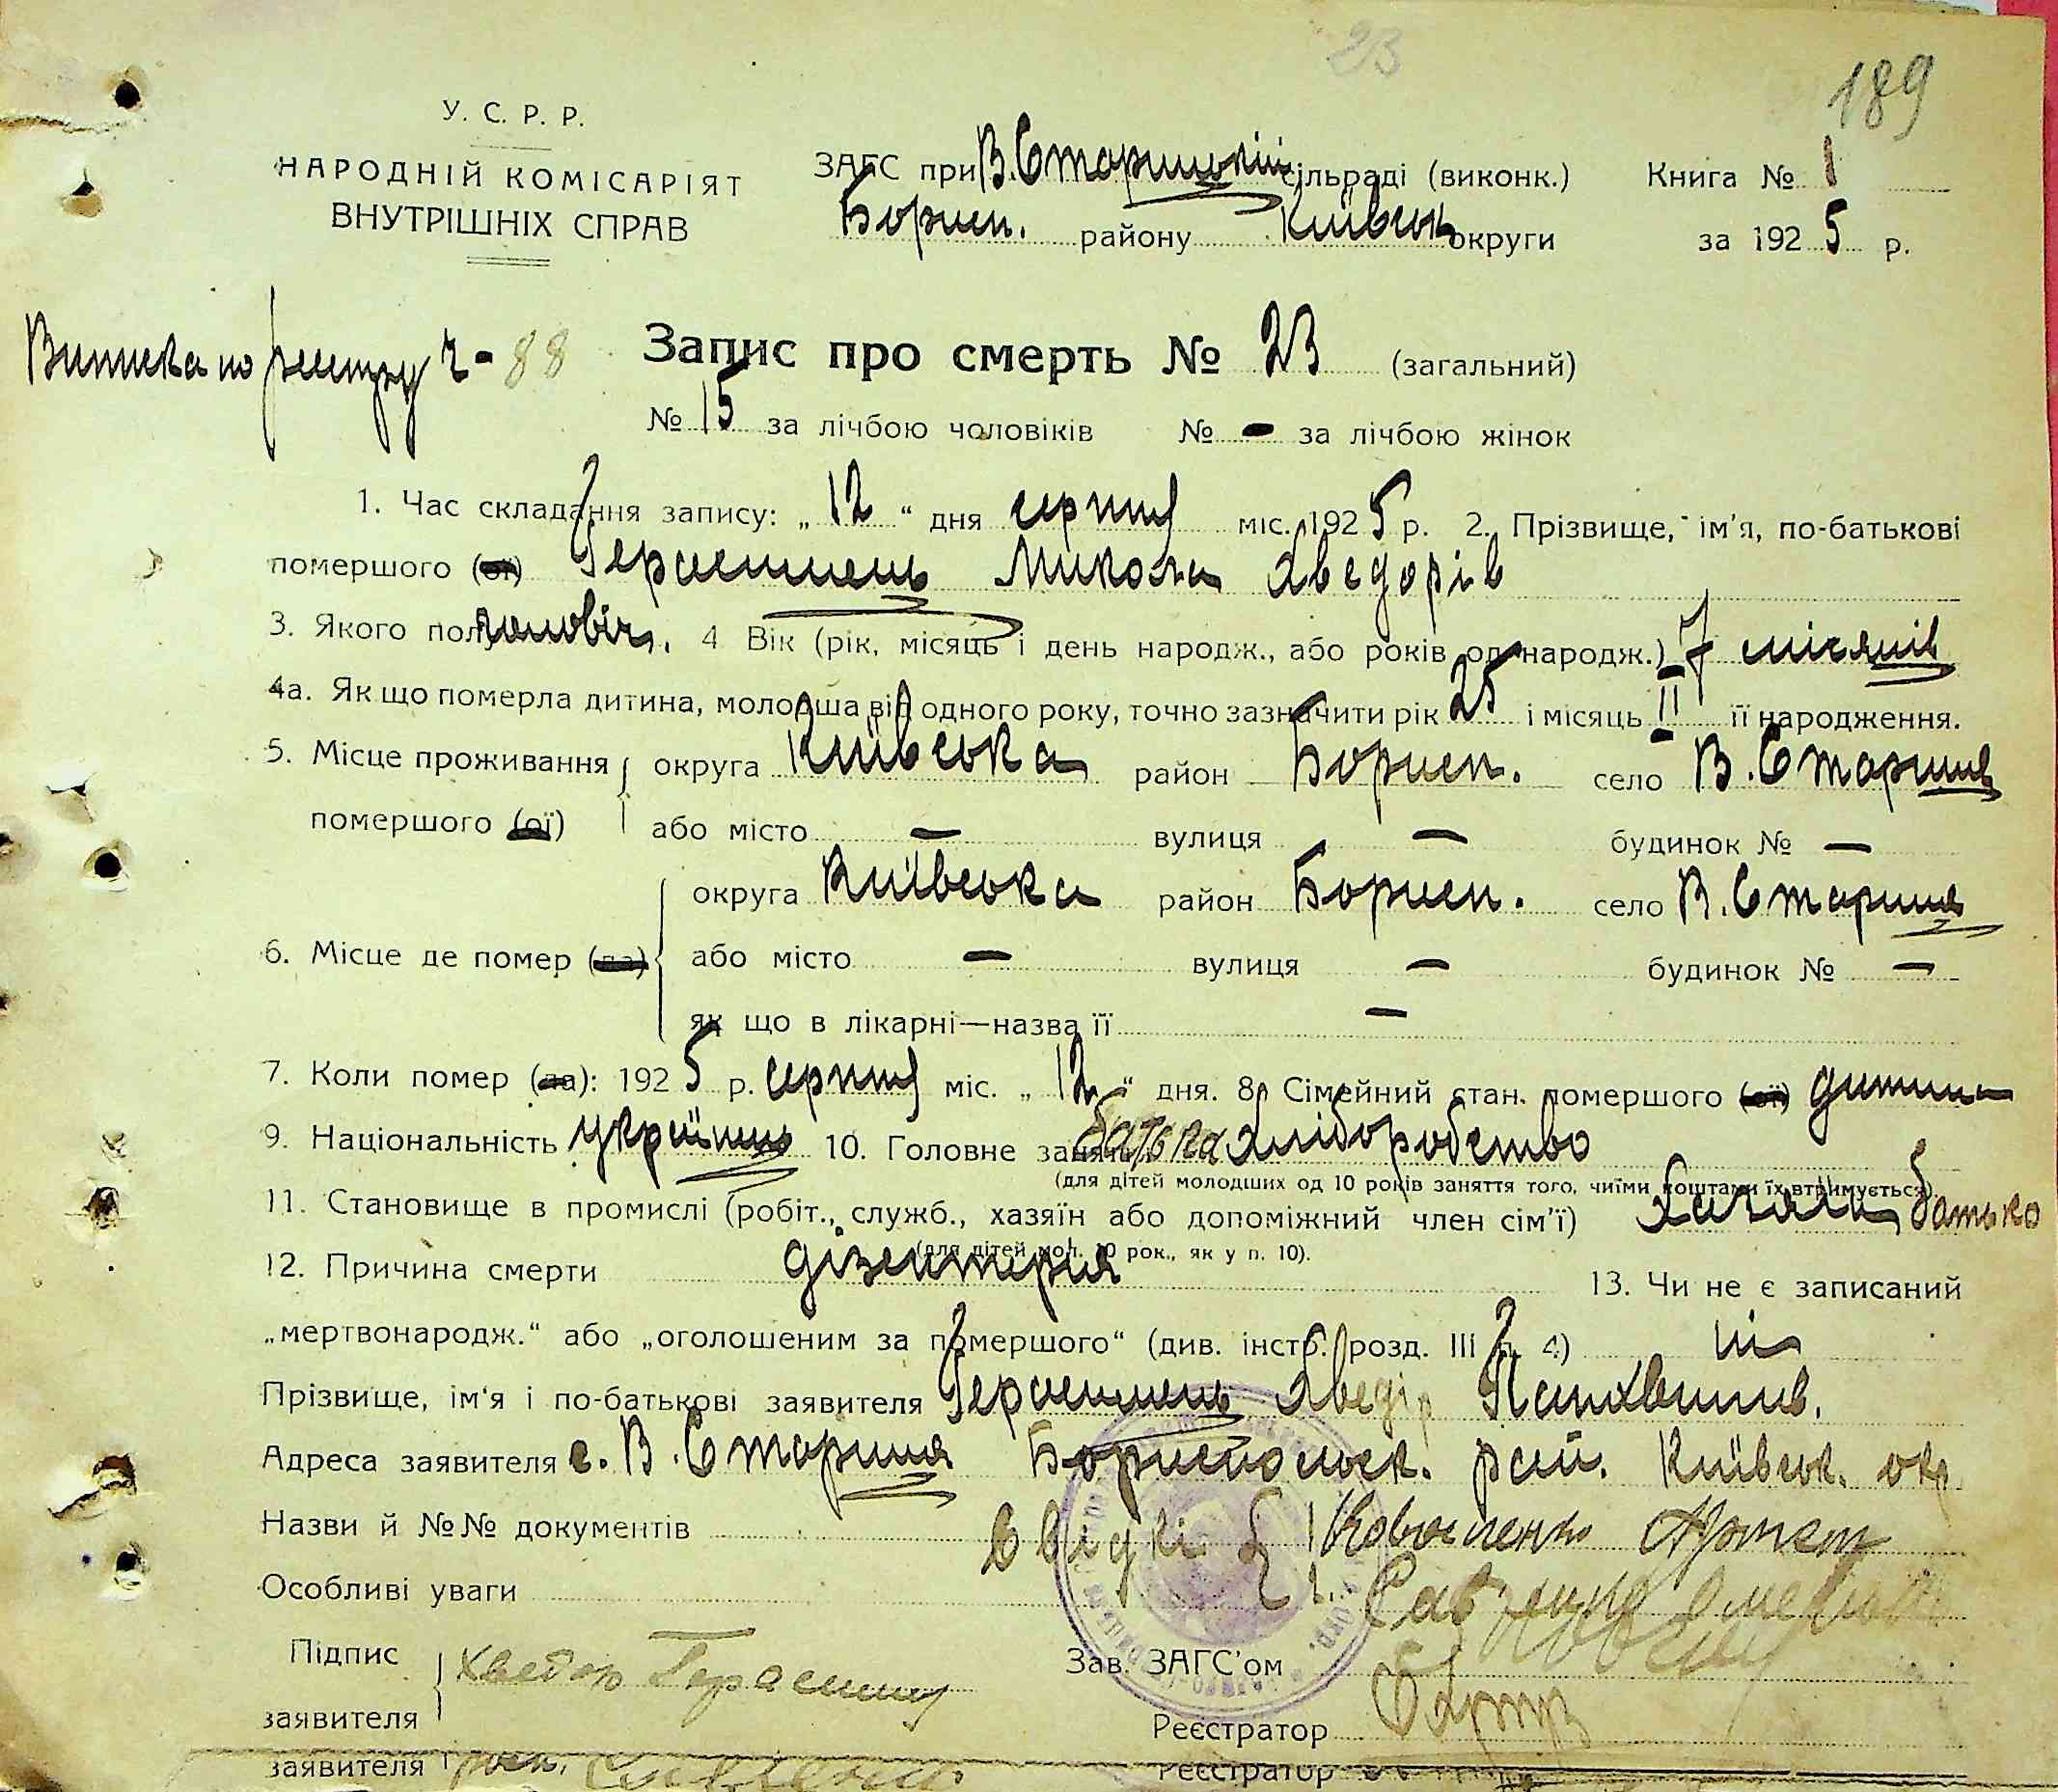 23
189
У. С. Р. Р.
НАРОДНІЙ КОМІСАРІЯТ
ВНУТРІШНІХ СПРАВ
ЗАГС при В. Старицькій сільраді (виконк.)
Борисп. району Київськ округи
Книга № 1
за 1925 р.
Виписка по реєстру ч - 88
Запис про смерть № 23 (загальний)
№ 15 за лічбою чоловіків № - за лічбою жінок
1. Час складання запису: „ 12 “ дня серпня міс. 1925 р. 2. Прізвище, ім'я, по-батькові
помершого (ої) Герасимець Микола Хведорів
3. Якого полу чоловіч. 4 Вік (рік, місяць і день народж., або років од народж.) 7 місяців
4а. Як що померла дитина, молодша від одного року, точно зазначити рік 25 і місяць II її народження.
5. Місце проживання округа Київська район Борисп. село В. Стариця
помершого (ої) або місто — вулиця — будинок № —
округа Київська район Борисп. село В. Стариця
6. Місце де помер (ла) або місто — вулиця — будинок № —
як що в лікарні—назва її —
7. Коли помер (ла): 1925 р. серпня міс. „ 12 “ дня. 8. Сімейний стан. помершого (ої) дитина
9. Національність українець 10. Головне заняття батька хліборобство
(для дітей молодших од 10 років заняття того, чиїми коштами їх втримується)
11. Становище в промислі (робіт., служб., хазяїн або допоміжний член сім'ї) батько
(для дітей мол. 10 рок., як у п. 10).
12. Причина смерти дізентерія 13. Чи не є записаний
„мертвонародж.“ або „оголошеним за помершого“ (див. інстр. розд. III п. 4) ні
Прізвище, ім'я і по-батькові заявителя Герасимець Хведір
Адреса заявителя с. В. Стариця Бориспольск. рай. Київськ. окр
Назви й №№ документів Свідкі 1 Коваленко Артем
Особливі уваги 2.
Підпис заявителя Хведор Герасимец
Зав. ЗАГС'ом
Реєстратор
заявителя
реєстратор